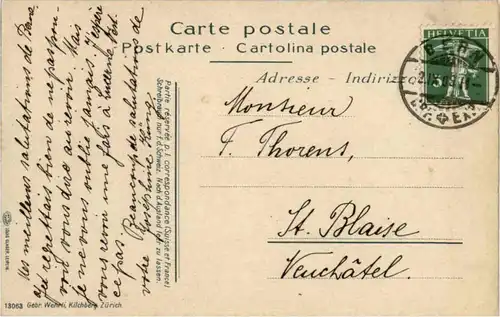 Carte postale
Postkarte - Cartolina postale
Adresse - Indirizzo
HELVETIA
5
BERN
Monsieur
F. Thorens,
St. Blaise
Neuchâtel.
Mes meilleures salutations de
Je regrettais bien de ne pas pou-
voir vous dire au revoir. Mais
je ne vous oublie jamais. J'espère
vous revoir une fois à
ce pas. Beaucoup de salutations de
votre Joséphine
Partie réservée p. l. correspondance (Suisse et France)
Schreibraum nur f. d. Schweiz. Nach d. Ausland leer zu lassen.
13063 Gebr. Wehrli, Kilchberg Zürich.